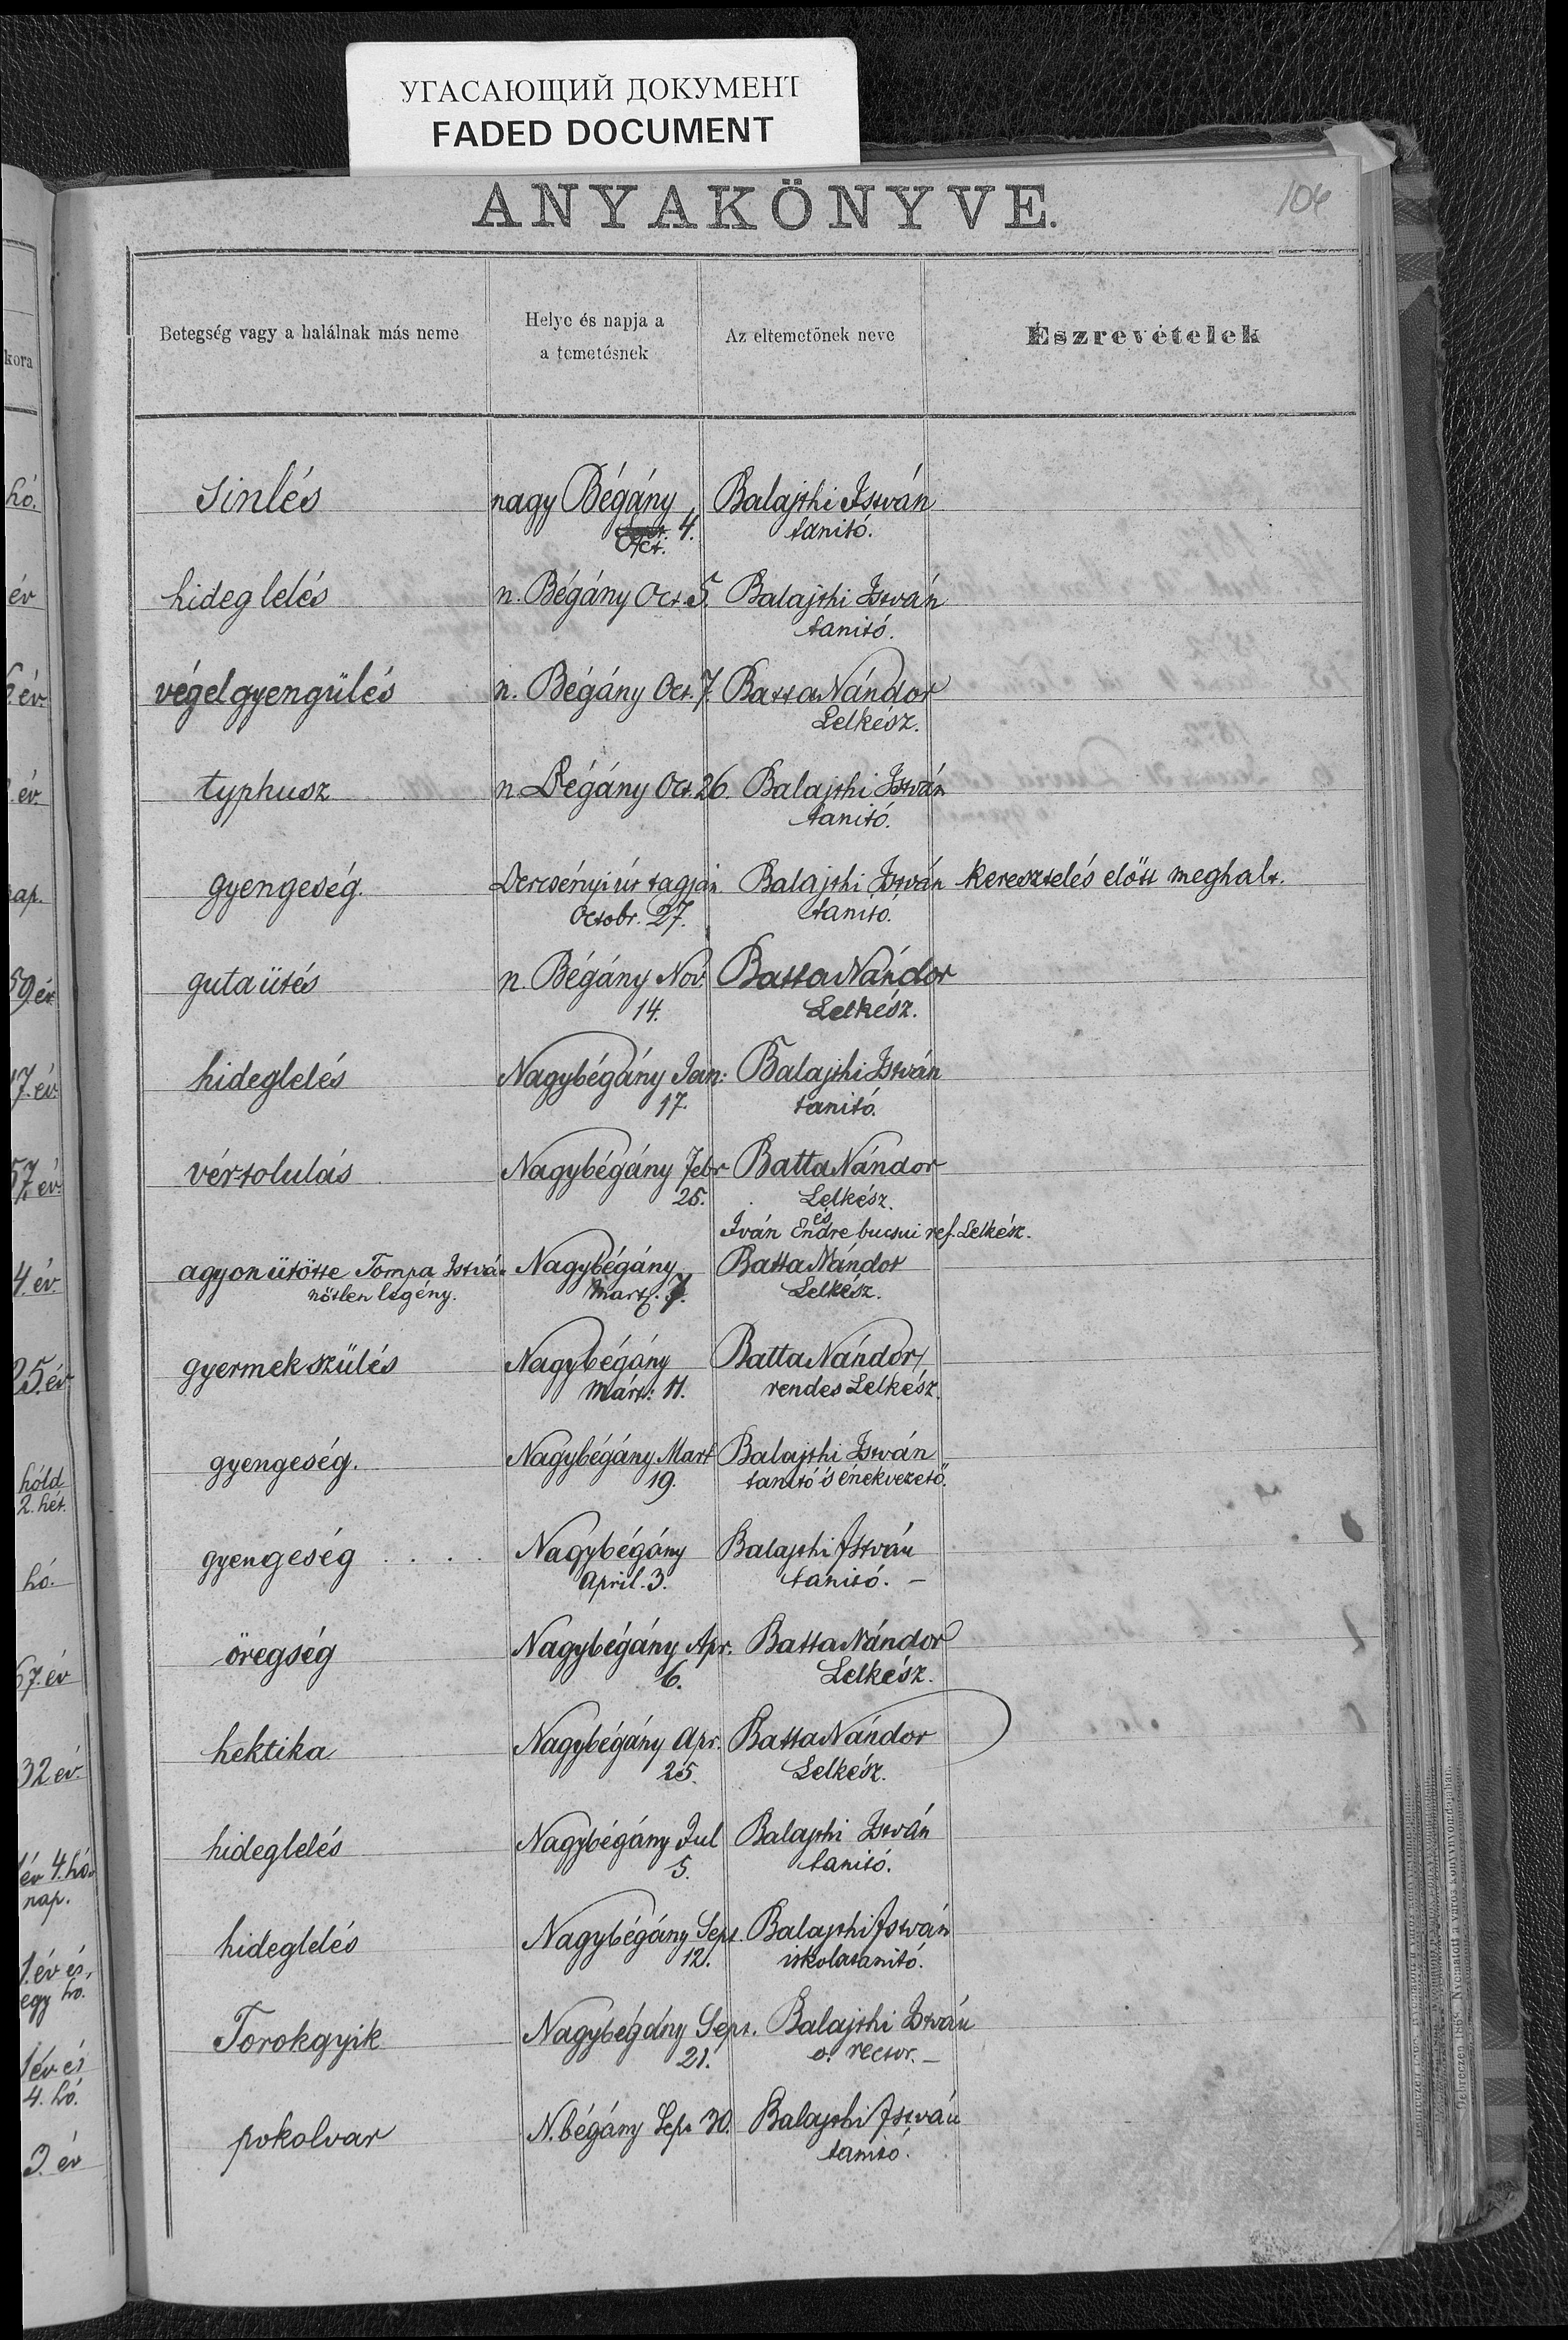 УГАСАЮЩИЙ ДОКУМЕНТ
FADED DOCUMENT
ANYAKÖNYVE.
106
kora
Betegség vagy a halálnak más neme
Helye és napja a
a temetésnek
Az eltemetőnek neve
Észrevételek
hó.
sinlés
nagy Bégány
4.
Oct.
Balajthi István
tanitó.
év
hideglelés
n. Bégány Oct. 5.
Balajthi István
tanitó.
év
végelgyengülés
n. Bégány Oct. 7.
Batta Nándor
Lelkész.
év.
typhusz
n. Bégány Oct. 26.
Balajthi István
tanitó.
nap.
gyengeség.
Dercsényi úr tagján
Octobr. 27.
Balajthi István
tanitó.
keresztelés előtt meghalt.
59 év
gutaütés
n. Bégány Nov.
14.
Batta Nándor
Lelkész.
17. év.
hideglelés
Nagybégány Jan:
17.
Balajthi István
tanitó.
57. év.
vértolulás
Nagybégány Febr
25.
Batta Nándor
Lelkész.
és
Iván Endre bucsui ref. Lelkész.
4 év.
agyonütötte Tompa István
nőtlen legény.
Nagybégány
Mart. 7.
Batta Nándor
Lelkész.
25. év
gyermekszülés
Nagybégány
Márt: 11.
Batta Nándor
rendes Lelkész.
hóld
2. hét.
gyengeség.
Nagybégány Mart
19.
Balajthi István
tanitó 's énekvezető.
hó.
gyengeség . . . .
Nagybégány
April. 3.
Balajthi István
tanitó. –
67. év
öregség
Nagybégány Apr.
6.
Batta Nándor
Lelkész.
32 év.
hektika
Nagybégány Apr.
25.
Batta Nándor
Lelkész.
év 4. hó
nap.
hideglelés
Nagybégány Jul
5.
Balajthi István
tanitó.
1. év és
egy hó.
hideglelés
Nagybégány Sept.
12.
Balajthi István
iskolatanitó.
1 év és
4. hó.
Torokgyik
Nagybégány Sept.
21.
Balajthi István
o. rector. –
3. év
pokolvar
N.bégány Sept 30.
Balajthi István
tanitó.
Debreczen 1868. Nyomatott a város könyvnyomdájában.